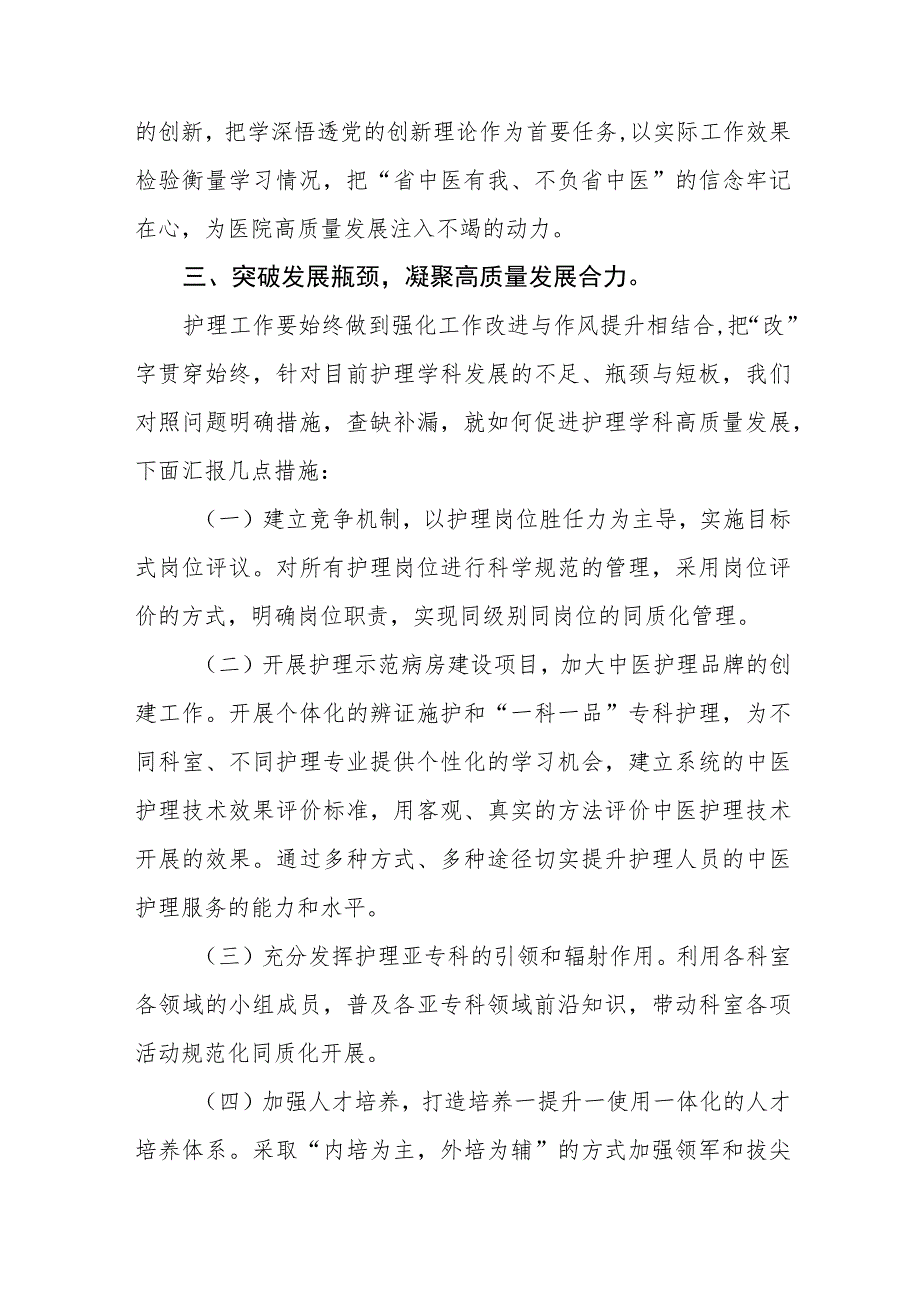 的创新，把学深悟透党的创新理论作为首要任务,以实际工作效果
检验衡量学习情况，把“省中医有我、不负省中医”的信念牢记
在心，为医院高质量发展注入不竭的动力。
三、突破发展瓶颈，凝聚高质量发展合力。
护理工作要始终做到强化工作改进与作风提升相结合,把“改”
字贯穿始终，针对目前护理学科发展的不足、瓶颈与短板，我们
对照问题明确措施，查缺补漏，就如何促进护理学科高质量发展，
下面汇报几点措施：
（一）建立竞争机制，以护理岗位胜任力为主导，实施目标
式岗位评议。对所有护理岗位进行科学规范的管理，采用岗位评
价的方式，明确岗位职责，实现同级别同岗位的同质化管理。
（二）开展护理示范病房建设项目，加大中医护理品牌的创
建工作。开展个体化的辨证施护和“一科一品”专科护理，为不
同科室、不同护理专业提供个性化的学习机会，建立系统的中医
护理技术效果评价标准，用客观、真实的方法评价中医护理技术
开展的效果。通过多种方式、多种途径切实提升护理人员的中医
护理服务的能力和水平。
（三）充分发挥护理亚专科的引领和辐射作用。利用各科室
各领域的小组成员，普及各亚专科领域前沿知识，带动科室各项
活动规范化同质化开展。
（四）加强人才培养，打造培养一提升一使用一体化的人才
培养体系。采取“内培为主，外培为辅”的方式加强领军和拔尖